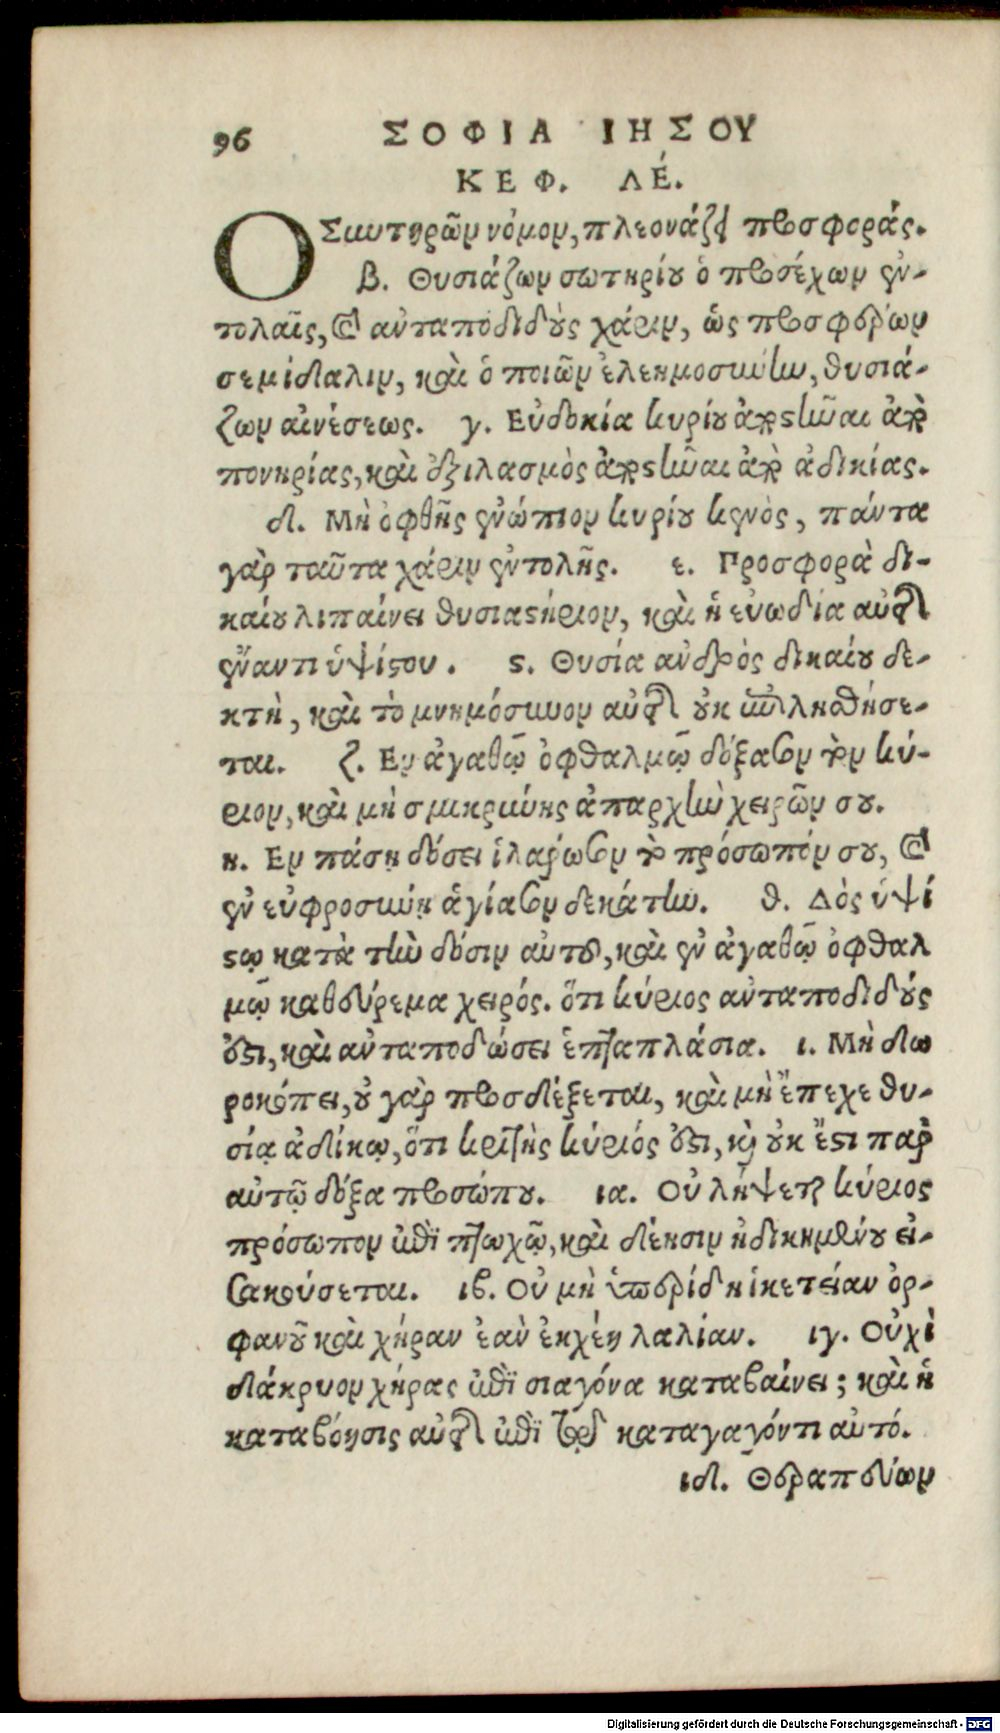 96 ΣΟΦΙΑ ΙΗΣΟΥ
ΚΕΦ. ΛΕ΄.
Ο Συντηρῶν νόμον, πλεονάζει προσφοράς.
β. Θυσιάζων σωτηρίου ὁ προσέχων ἐν-
τολαῖς, καὶ ἀνταποδιδοὺς χάριν, ὡς προσφέρων
σεμίδαλιν, καὶ ὁ ποιῶν ἐλεημοσύνην, θυσιά-
ζων αἰνέσεως. γ. Εὐδοκία κυρίου ἀποστῆναι ἀπὸ
πονηρίας, καὶ ἐξιλασμὸς ἀποστῆναι ἀπὸ ἀδικίας.
δ. Μὴ ὀφθῇς ἐνώπιον κυρίου κενὸς, πάντα
γὰρ ταῦτα χάριν ἐντολῆς. ε. Προσφορὰ δι-
καίου λιπαίνει θυσιαστήριον, καὶ ἡ εὐωδία αὐτῆς
ἔναντι ὑψίστου. ς. Θυσία ἀνδρὸς δικαίου δε-
κτὴ, καὶ τὸ μνημόσυνον αὐτῆς οὐκ ἐπιλησθήσε-
ται. ζ. Εν ἀγαθῷ ὀφθαλμῷ δόξασον τὸν κύ-
ριον, καὶ μὴ σμικρύνῃς ἀπαρχὴν χειρῶν σου.
η. Εν πάσῃ δόσει ἱλάρωσον τὸ πρόσωπόν σου, καὶ
ἐν εὐφροσύνῃ ἁγίασον δεκάτην. θ. Δὸς ὑψί
στῳ κατὰ τὴν δόσιν αὐτοῦ, καὶ ἐν ἀγαθῷ ὀφθαλ
μῷ καθεύρεμα χειρός. ὅτι κύριος ἀνταποδιδούς
ἐστι, καὶ ἀνταποδώσει ἑπταπλάσια. ι. Μὴ δω
ροκόπει, οὐ γὰρ προσδέξεται, καὶ μὴ ἔπεχε θυ-
σίᾳ ἀδίκῳ, ὅτι κριτὴς κύριός ἐστι, καὶ οὐκ ἔστι παρ'
αὐτῷ δόξα προσώπου. ια. Οὐ λήψεται κύριος
πρόσωπον ἐπὶ πτωχῷ, καὶ δέησιν ἠδικημένου εἰ-
σακούσεται. ιβ. Οὐ μὴ ὑπερίδῃ ἱκετείαν ὀρ-
φανοῦ καὶ χήραν ἐὰν ἐκχέῃ λαλίαν. ιγ. Οὐχὶ
δάκρυον χήρας ἐπὶ σιαγόνα καταβαίνει; καὶ ἡ
καταβόησις αὐτῆς ἐπὶ τῷ καταγαγόντι αὐτό.
ιδ. Θεραπεύων
Digitalisierung gefördert durch die Deutsche Forschungsgemeinschaft - DFG